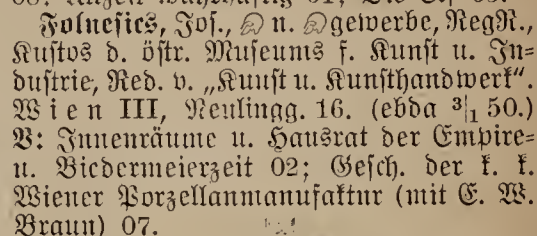 Folnesics, Jos., u. gewerbe, RegR.,
Kustos d. östr. Museums f. Kunst u. In-
dustrie, Red. v. „Kunst u. Kunsthandwerk".
Wien III, Neulingg. 16. (ebda 3|1 50.)
V: Innenräume u. Hausrat der Empire-
u. Biedermeierzeit 02; Gesch. der k. k.
Wiener Porzellanmanufaktur (mit E. W.
Braun) 07.